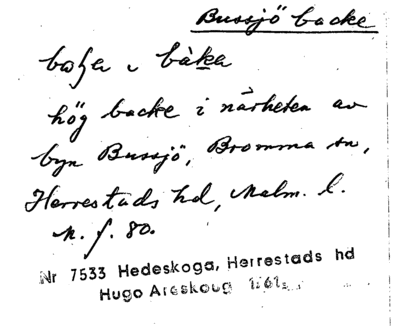 Bussjö backe
bака
hög backe i närheten av
byn Bussjö, Bromma sn,
Herrestads hd, Malm. l.
n. f. 80.
Nr 7533 Hedeskoga, Herrestads hd
Hugo Areskoug